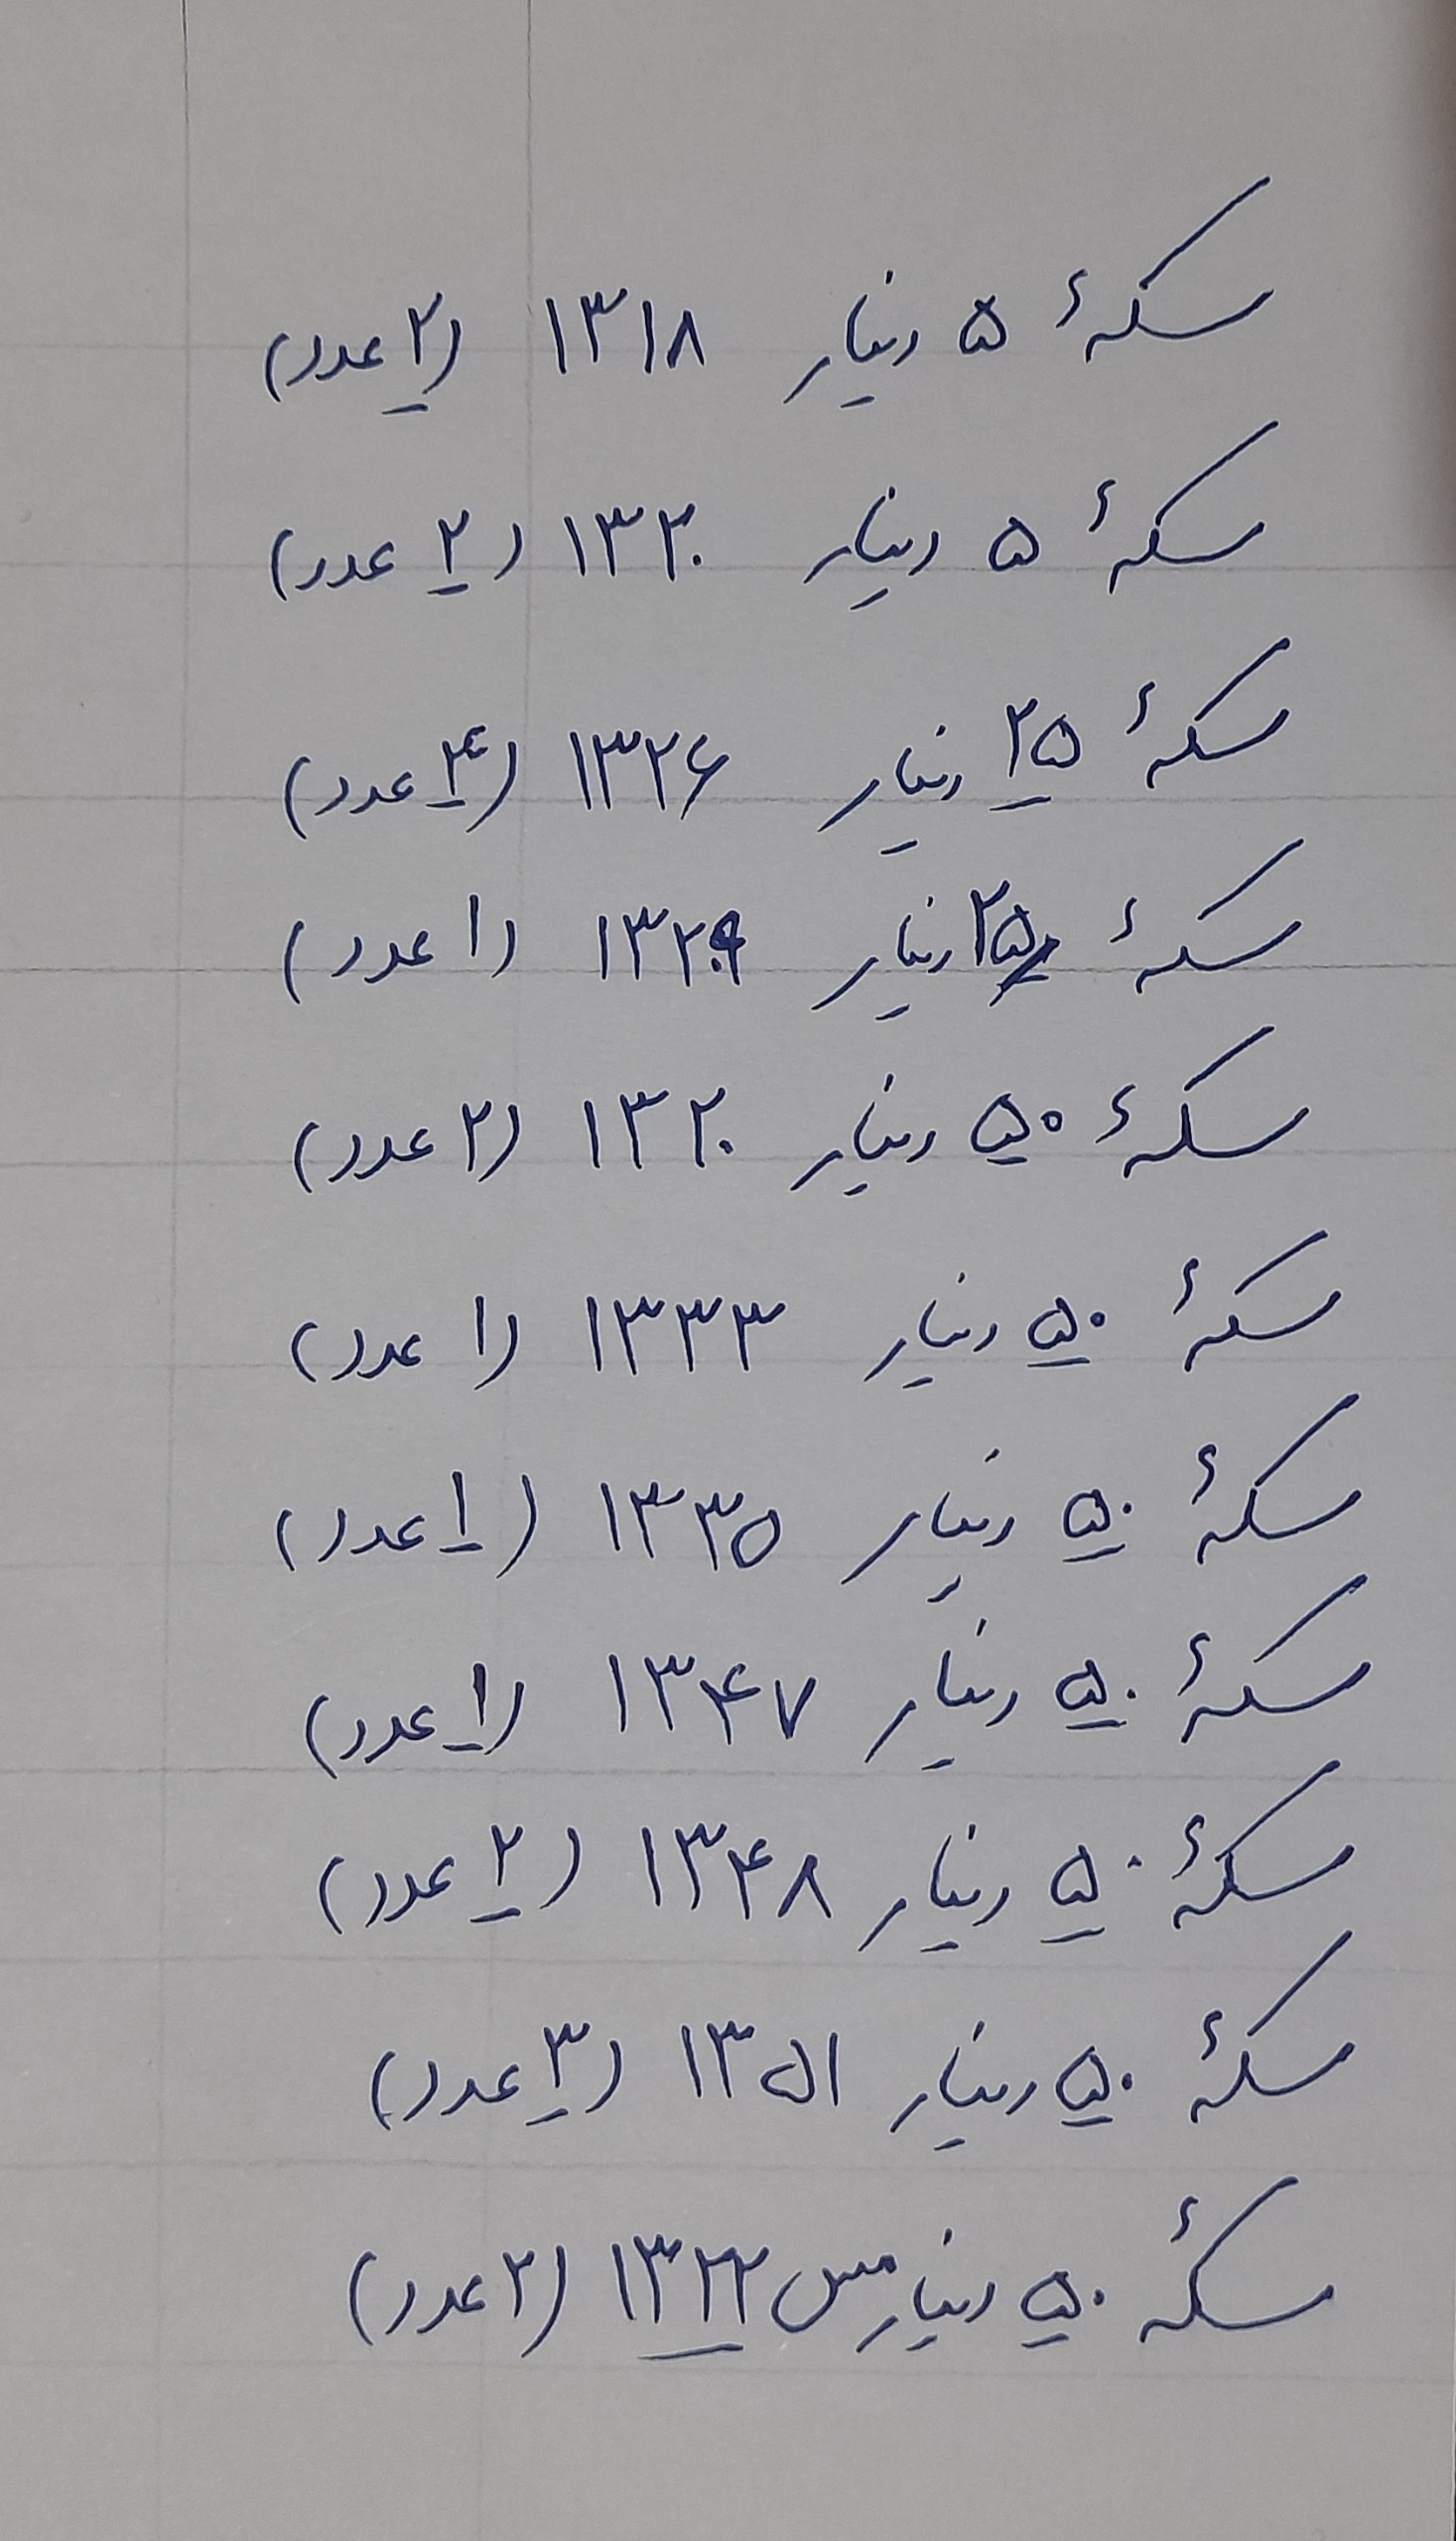 سکهٔ ۵ دینار ۱۳۱۸ (۲ عدد)
سکهٔ ۵ دینار ۱۳۲۰ (۲ عدد)
سکهٔ ۲۵ دینار ۱۳۲۶ (۴ عدد)
سکهٔ ۲۵ دینار ۱۳۲۹ (۱ عدد)
سکهٔ ۵۰ دینار ۱۳۲۰ (۲ عدد)
سکهٔ ۵۰ دینار ۱۳۳۳ (۱ عدد)
سکهٔ ۵۰ دینار ۱۳۳۵ (۱ عدد)
سکهٔ ۵۰ دینار ۱۳۴۷ (۱ عدد)
سکهٔ ۵۰ دینار ۱۳۴۸ (۲ عدد)
سکهٔ ۵۰ دینار ۱۳۵۱ (۳ عدد)
سکهٔ ۵۰ دینار مس ۱۳۲۲ (۲ عدد)